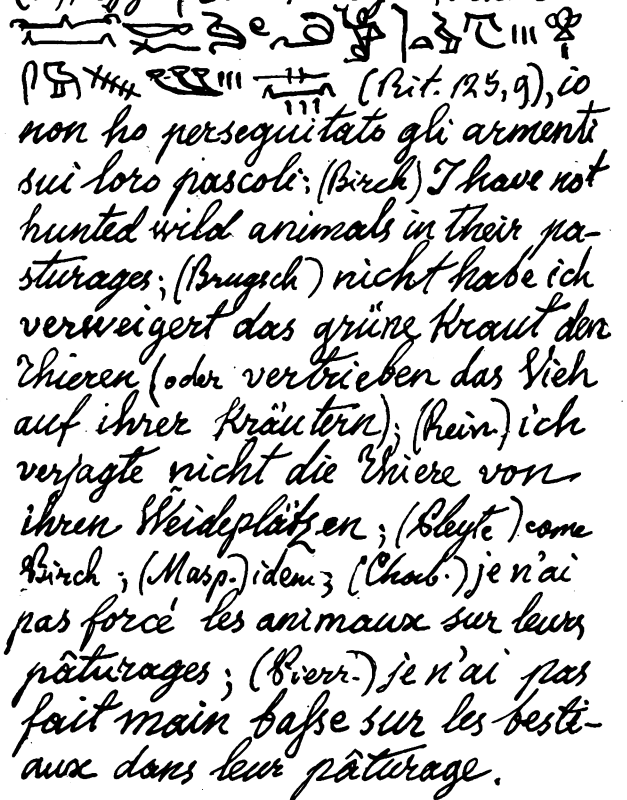 (Rit. 125,9), io
non ho perseguitato gli armenti
sui loro pascoli; (Birch) I have not
hunted wild animals in their pa-
sturages; (Brugsch) nicht habe ich
verweigert das grüne Kraut den
Thieren (oder vertrieben das Vieh
auf ihrer Kräutern); (Rein.) ich
verjagte nicht die Thiere von
ihren Weideplätzen; (Pleyte) come
Birch; (Masp.) idem; (Chab.) je n'ai
pas forcé les animaux sur leurs
pâturages; (Pierr.) je n'ai pas
fait main baſse sur les besti-
aux dans leur pâturage.